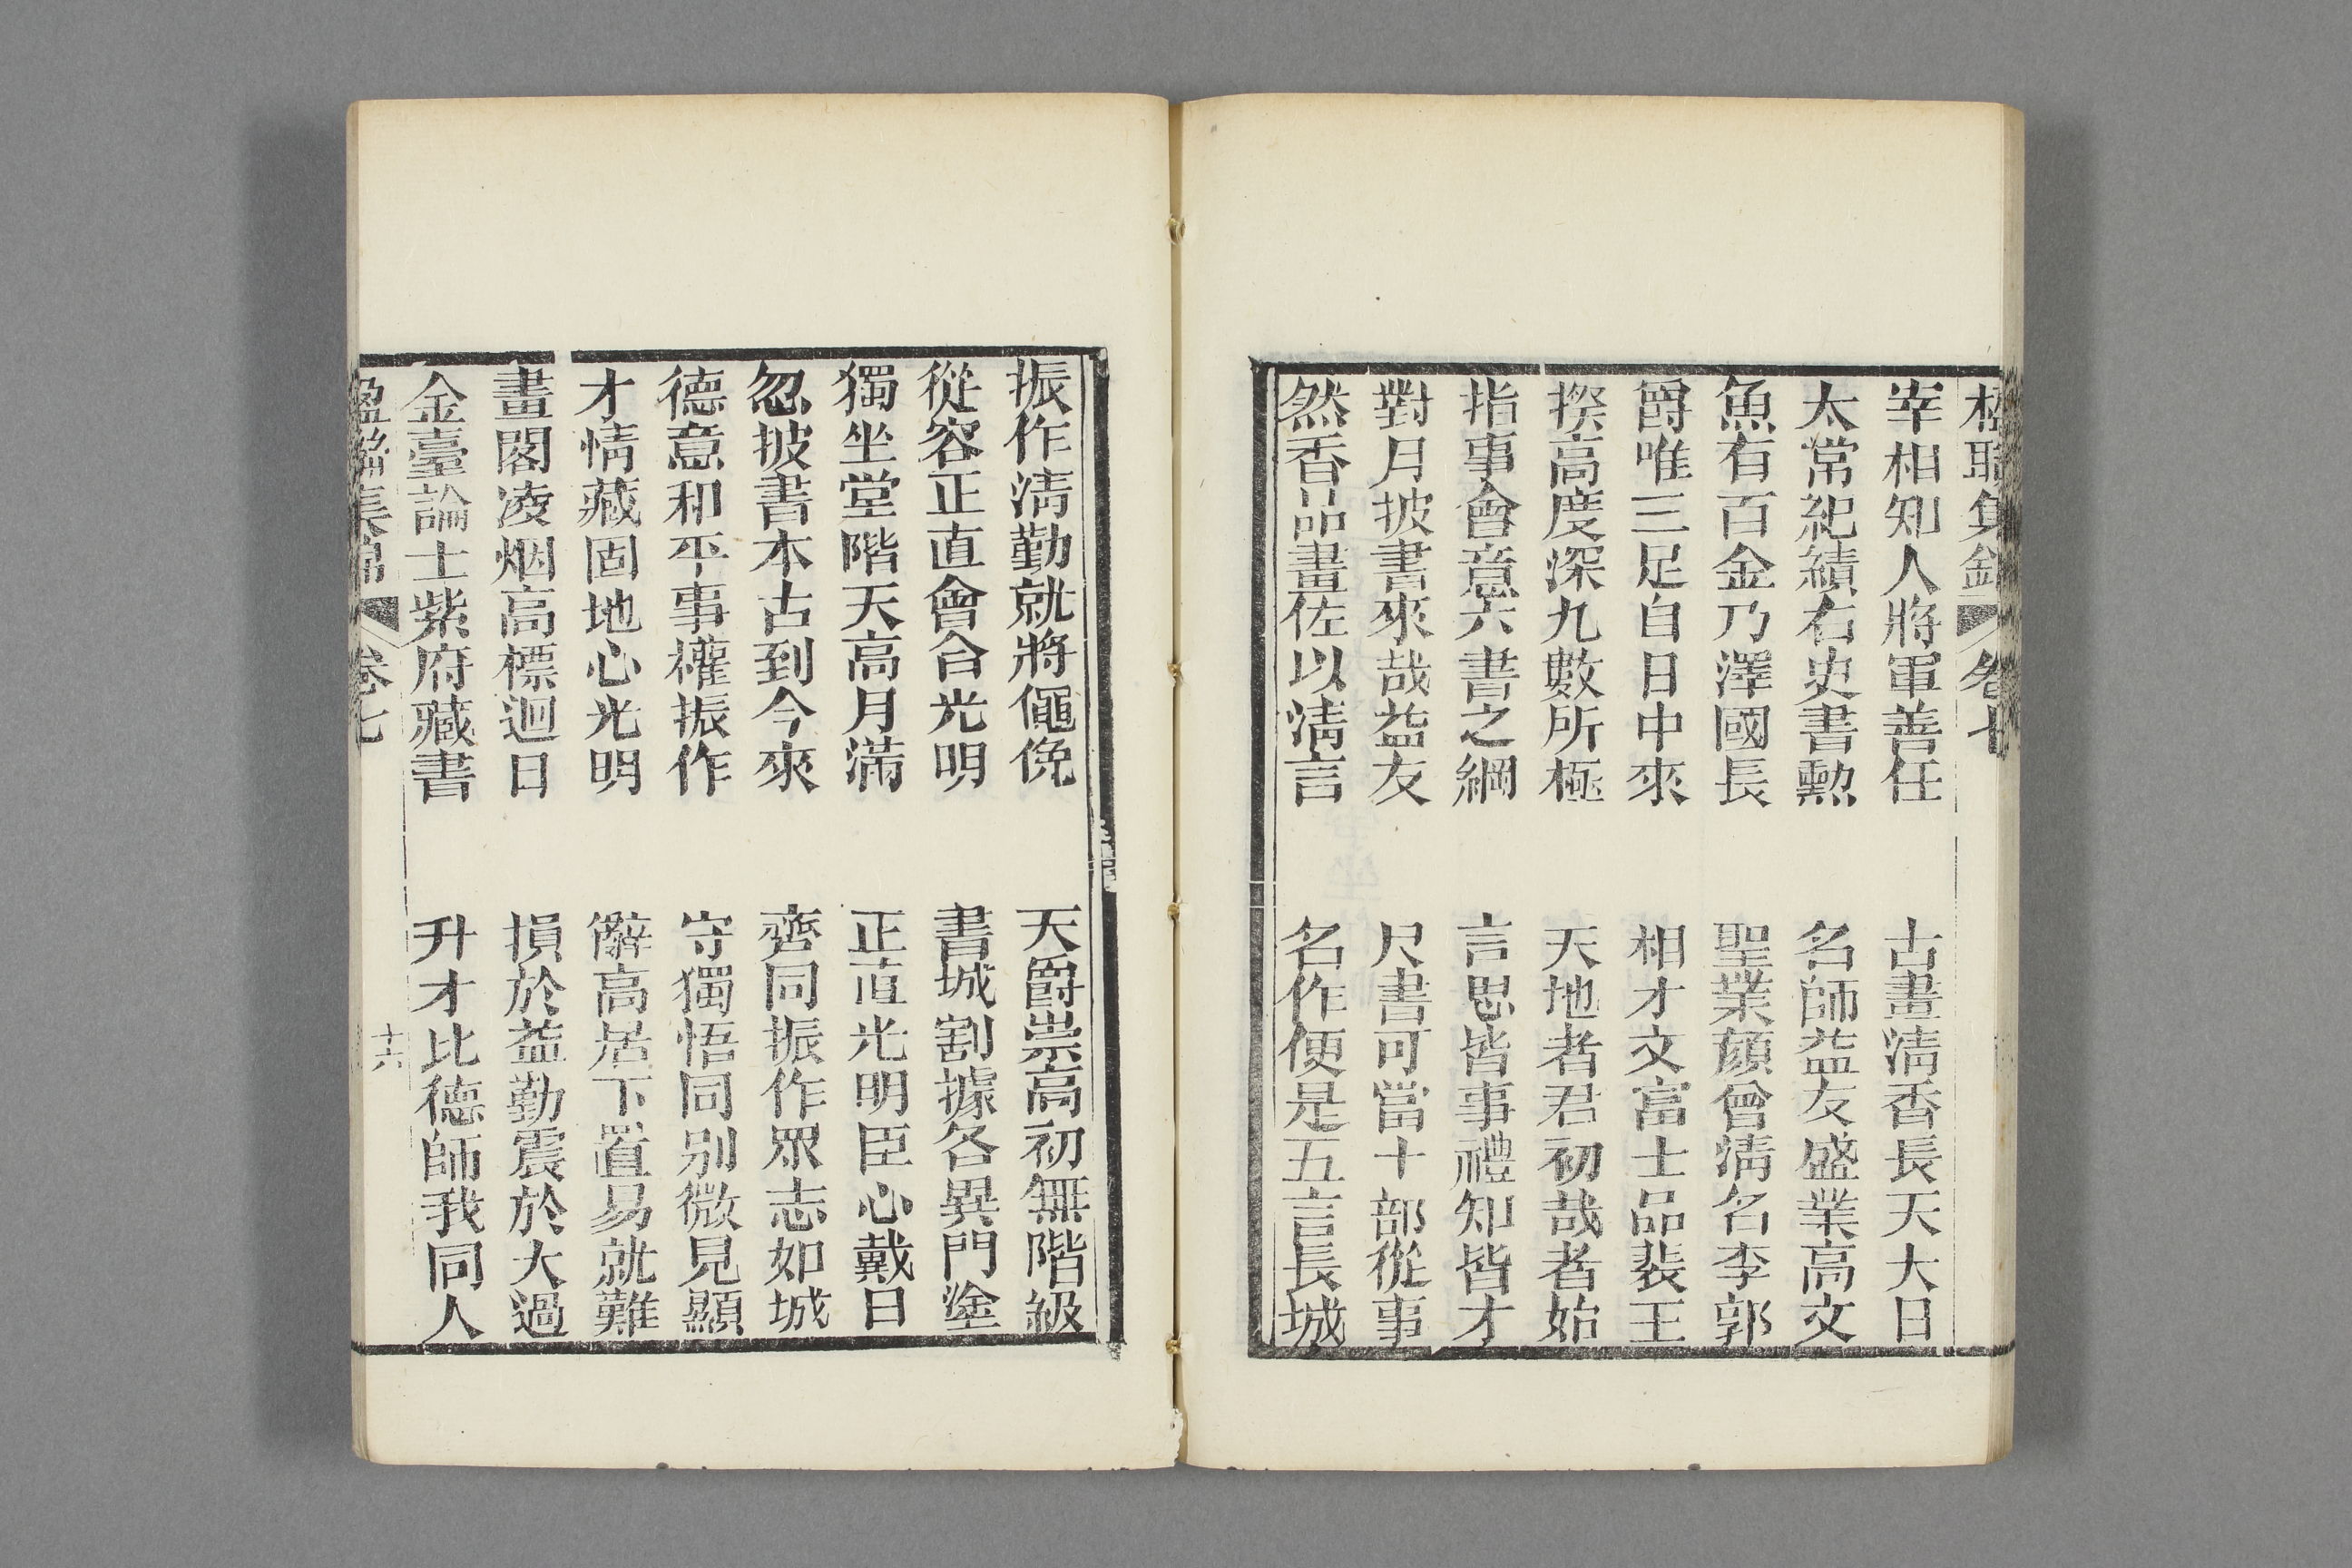 聯集錦 卷七
宰相知人將軍善任 古畫清香長天大日
太常紀績右史書勲 名師益友盛業高文
魚有百金乃澤國長 聖業顏曾清名李郭
爵唯三足自日中來 相才文富士品裴王
揆高度深九數所極 天地者君初哉者始
指事會意六書之綱 言思皆事禮知皆才
對月披書來哉益友 尺書可當十部從事
然香品畫佐以清言 名作便是五言長城
振作清勤就將僶俛 天爵崇高初無階級
從容正直會合光明 書城割據各異門塗
獨坐堂階天高月滿 正直光明臣心戴日
忽披書本古到今來 齊同振作眾志如城
德意和平事權振作 守獨悟同别微見顯
才情藏固地心光明 辭高居下置易就難
畫閣凌烟高標迴日 損於益勤震於大過
金臺論士紫府藏書 升才比德師我同人
楹聯集錦 卷七 十六